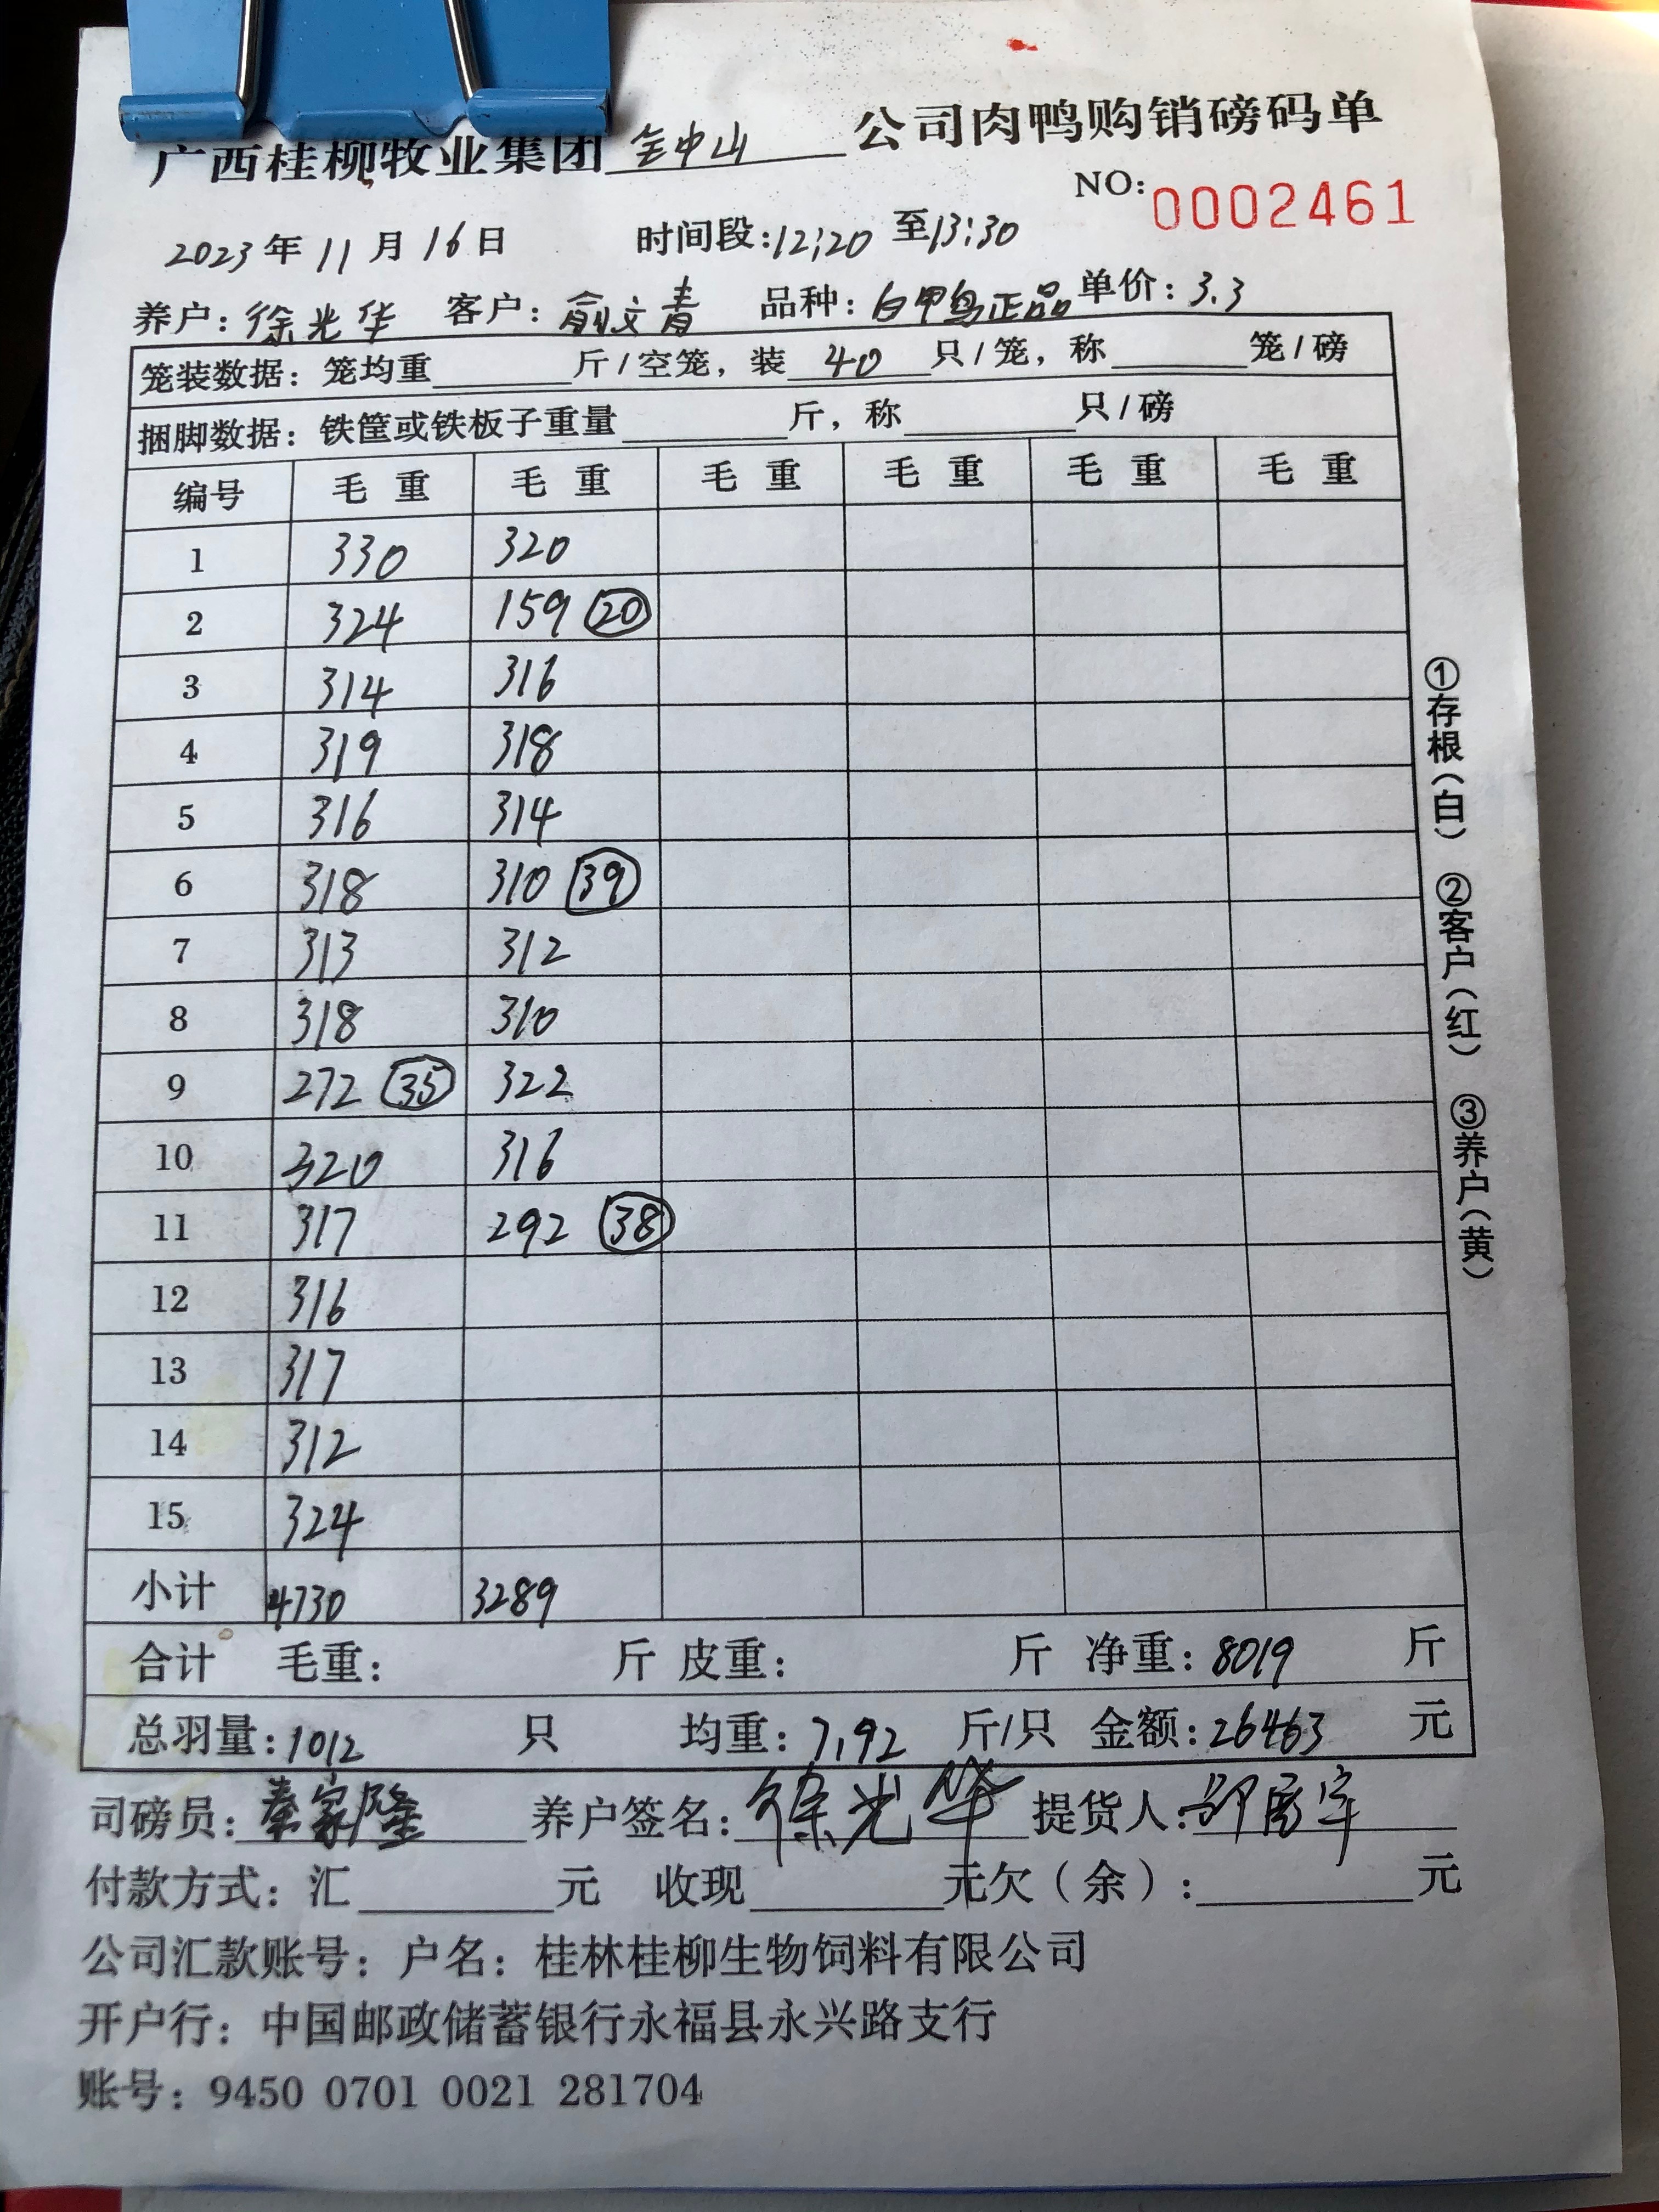 广西桂柳牧业集团全中山公司肉鸭购销磅码单
NO: 0002461
2023年11月16日 时间段:12:20至13:30
养户:徐光华 客户:俞文青 品种:白甲鸟正品 单价:3.3
笼装数据:笼均重 斤/空笼,装 40 只/笼,称 笼/磅
捆脚数据:铁筐或铁板子重量 斤,称 只/磅
编号 毛重 毛重 毛重 毛重 毛重 毛重
1 330 320
2 324 159 ⑳
3 314 316
4 319 318
5 316 314
6 318 310 ㊴
7 313 312
8 318 310
9 272 ㉟ 322
10 320 316
11 317 292 ㊳
12 316
13 317
14 312
15 324
小计 4730 3289
合计 毛重: 斤 皮重: 斤 净重:8019 斤
总羽量:1012 只 均重:7.92 斤/只 金额:26463 元
司磅员:秦家隆 养户签名:徐光华 提货人:
付款方式:汇 元 收现 元欠(余): 元
公司汇款账号:户名:桂林桂柳生物饲料有限公司
开户行:中国邮政储蓄银行永福县永兴路支行
账号:9450 0701 0021 281704
①存根(白) ②客户(红) ③养户(黄)